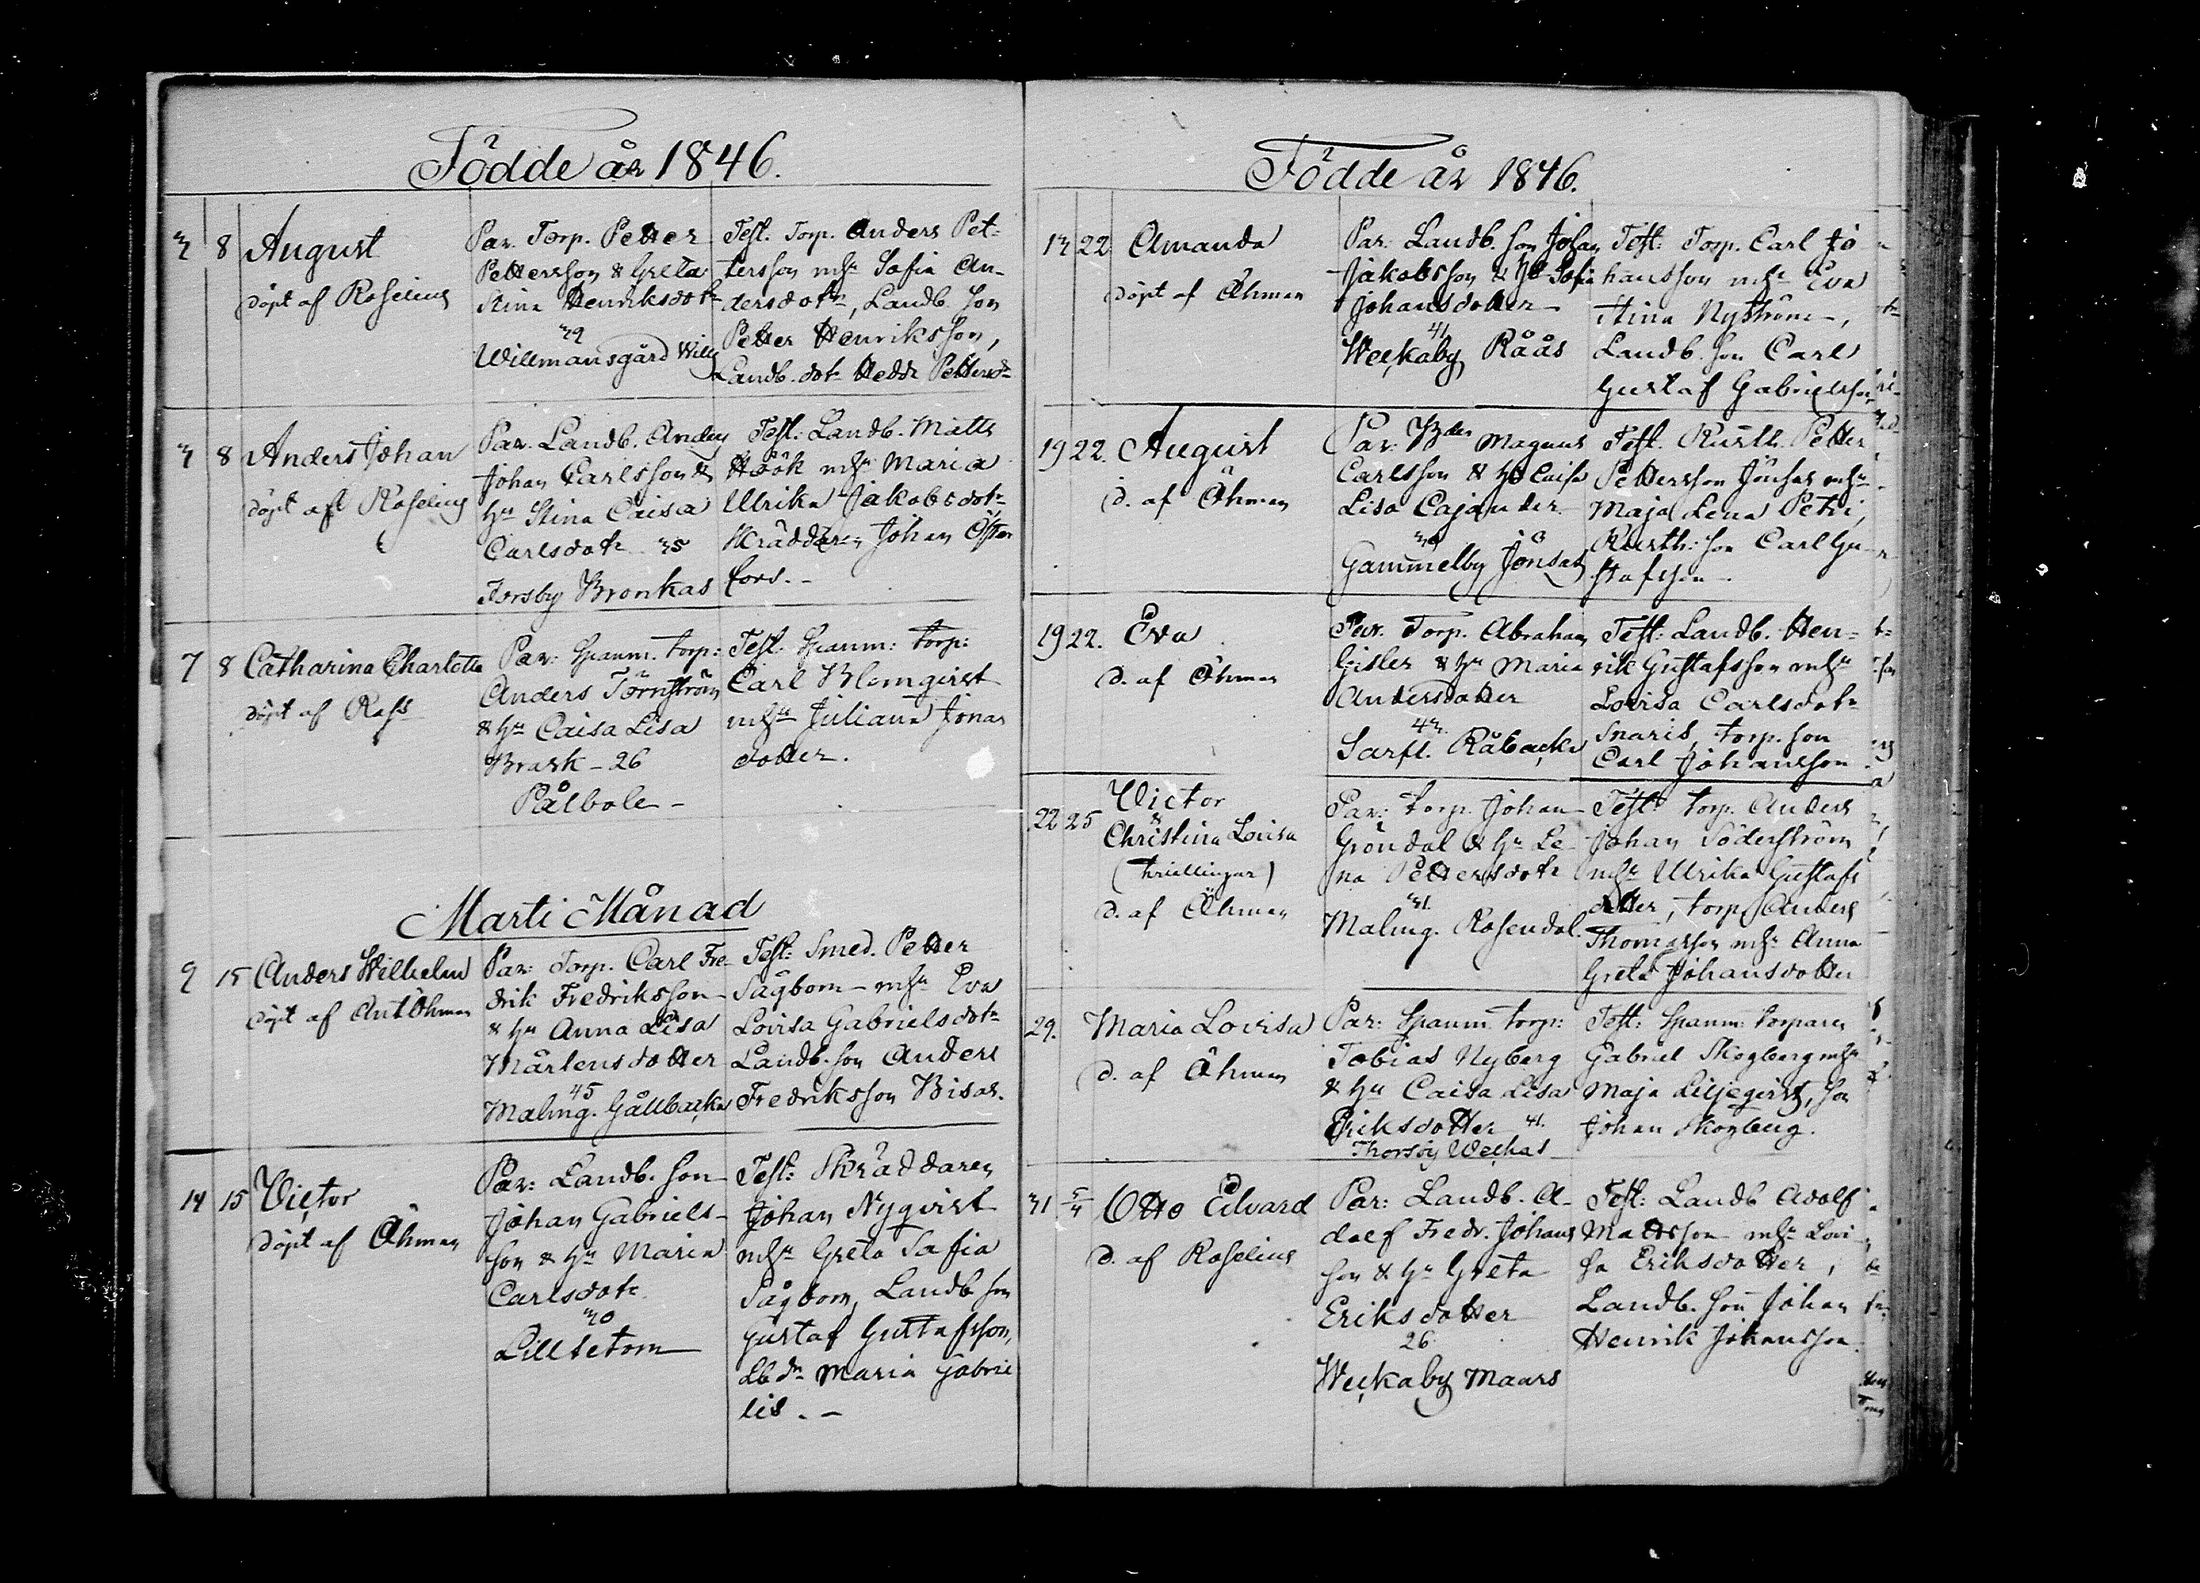 Födde år 1846.
3 8 August
döpt af Roselius
Par. Torp. Petter
Pettersson & Greta
Stina Henriksdotr
39
Willmansgård Will
Test. Torp. Anders Pet-
tersson mhu Sofia An-
dersdotr, Landb. son
Petter Henriksson,
Landb. dotr Hedda Pettersdr
3 8 Anders Johan
döpt af Roselius
Par. Landb. Anders
Johan Carlsson &
Hu Stina Caisa
Carlsdotr 35
Forsby Bronkas
Test: Landb. Matts
Höök mhu Maria
Ulrika Jakobsdotr
Skräddaren Johan Öster
fors. -
7 8 Catharina Charlotta
döpt af Ross
Par: Spanm. torp:
Anders Törnström
& Hu Caisa Lisa
Brask - 26
Pålbole -
Test. Spanm: torp:
Carl Blomqvist
mhu Juliana Jonas
dotter.
Marti Månad
9 15 Anders Wilhelm
döpt af Ant Öhman
Par: Torp. Carl Fre-
drik Fredriksson
& Hu Anna Lisa
Mårtensdotter
45
Malmg. Gållbacka
Test: Smed. Petter
Sågbom - mhu Eva
Lovisa Gabrielsdotr
Landb. son Anders
Fredriksson Bisas.
14 15 Victor
döpt af Öhman
Par: Landb. son
Johan Gabriels-
son & Hu Maria
Carlsdotr
30
Lillsetom
Test: Skräddaren
Johan Nyqvist
mhu Greta Safia
Sågbom, Landb. son
Gustaf Gustafsson,
Lb dr Maria Gabrie
lis. -
Födde år 1846.
13 22 Amanda
döpt af Öhman
Par: Landb. son Johan
Jakobsson & Hu Sofia
Johansdotter
41
Weckaby Råås
Test: Torp. Carl Jo
hansson mhu Eva
Stina Nyström,
Landb. son Carl
Gustaf Gabrielsson
19 22. August
d. af Öhman
Par: Magnus
Carlsson & Hu Caisa
Lisa Cajander
30
Gammelby Jönsas
Test. Rusth. Petter
Pettersson Jönsas mhu
Maja Lena Petri,
Rusth: son Carl Gu
stafsson -
19 22. Eva
d. af Öhman
Par. Torp. Abraham
Gisler & Hu Maria
Andersdotter
43.
Sarfl. Råbacka
Test: Landb. Hen-
rik Gustafsson mhu
Lovisa Carlsdotr
Snaris, torp. son
Carl Johansson
22 25 Victor
&
Christina Lovisa
(trillingar)
d. af Öhman
Par: torp. Johan
Gröndal & Hu Le
na Pettersdotr
31.
Malmg. Rosendal.
Test: torp. Anders
Johan Söderström
mhu Ulrika Gustafs
dotter, torp. Anders
Thomasson mhu Anna
Greta Johansdotter
29. Maria Lovisa
d. af Öhman
Par: Spanm. torp:
Tobias Nyberg
& Hu Caisa Lisa
Eriksdotter 41.
Thorsby Weckas
Test: Spanm: torparen
Gabriel Skogberg mhu
Maja Liljeqvist, son
Johan Skogberg.
31 5/4 Otto Edvard
d. af Roselius
Par: Landb. A-
dolf Fredr. Johans
son & Hu Greta
Eriksdotter
26
Weckaby Maars
Test: Landb Adolf
Mattsson mhu Lovi
sa Eriksdotter,
Landb. son Johan
Henrik Johansson.